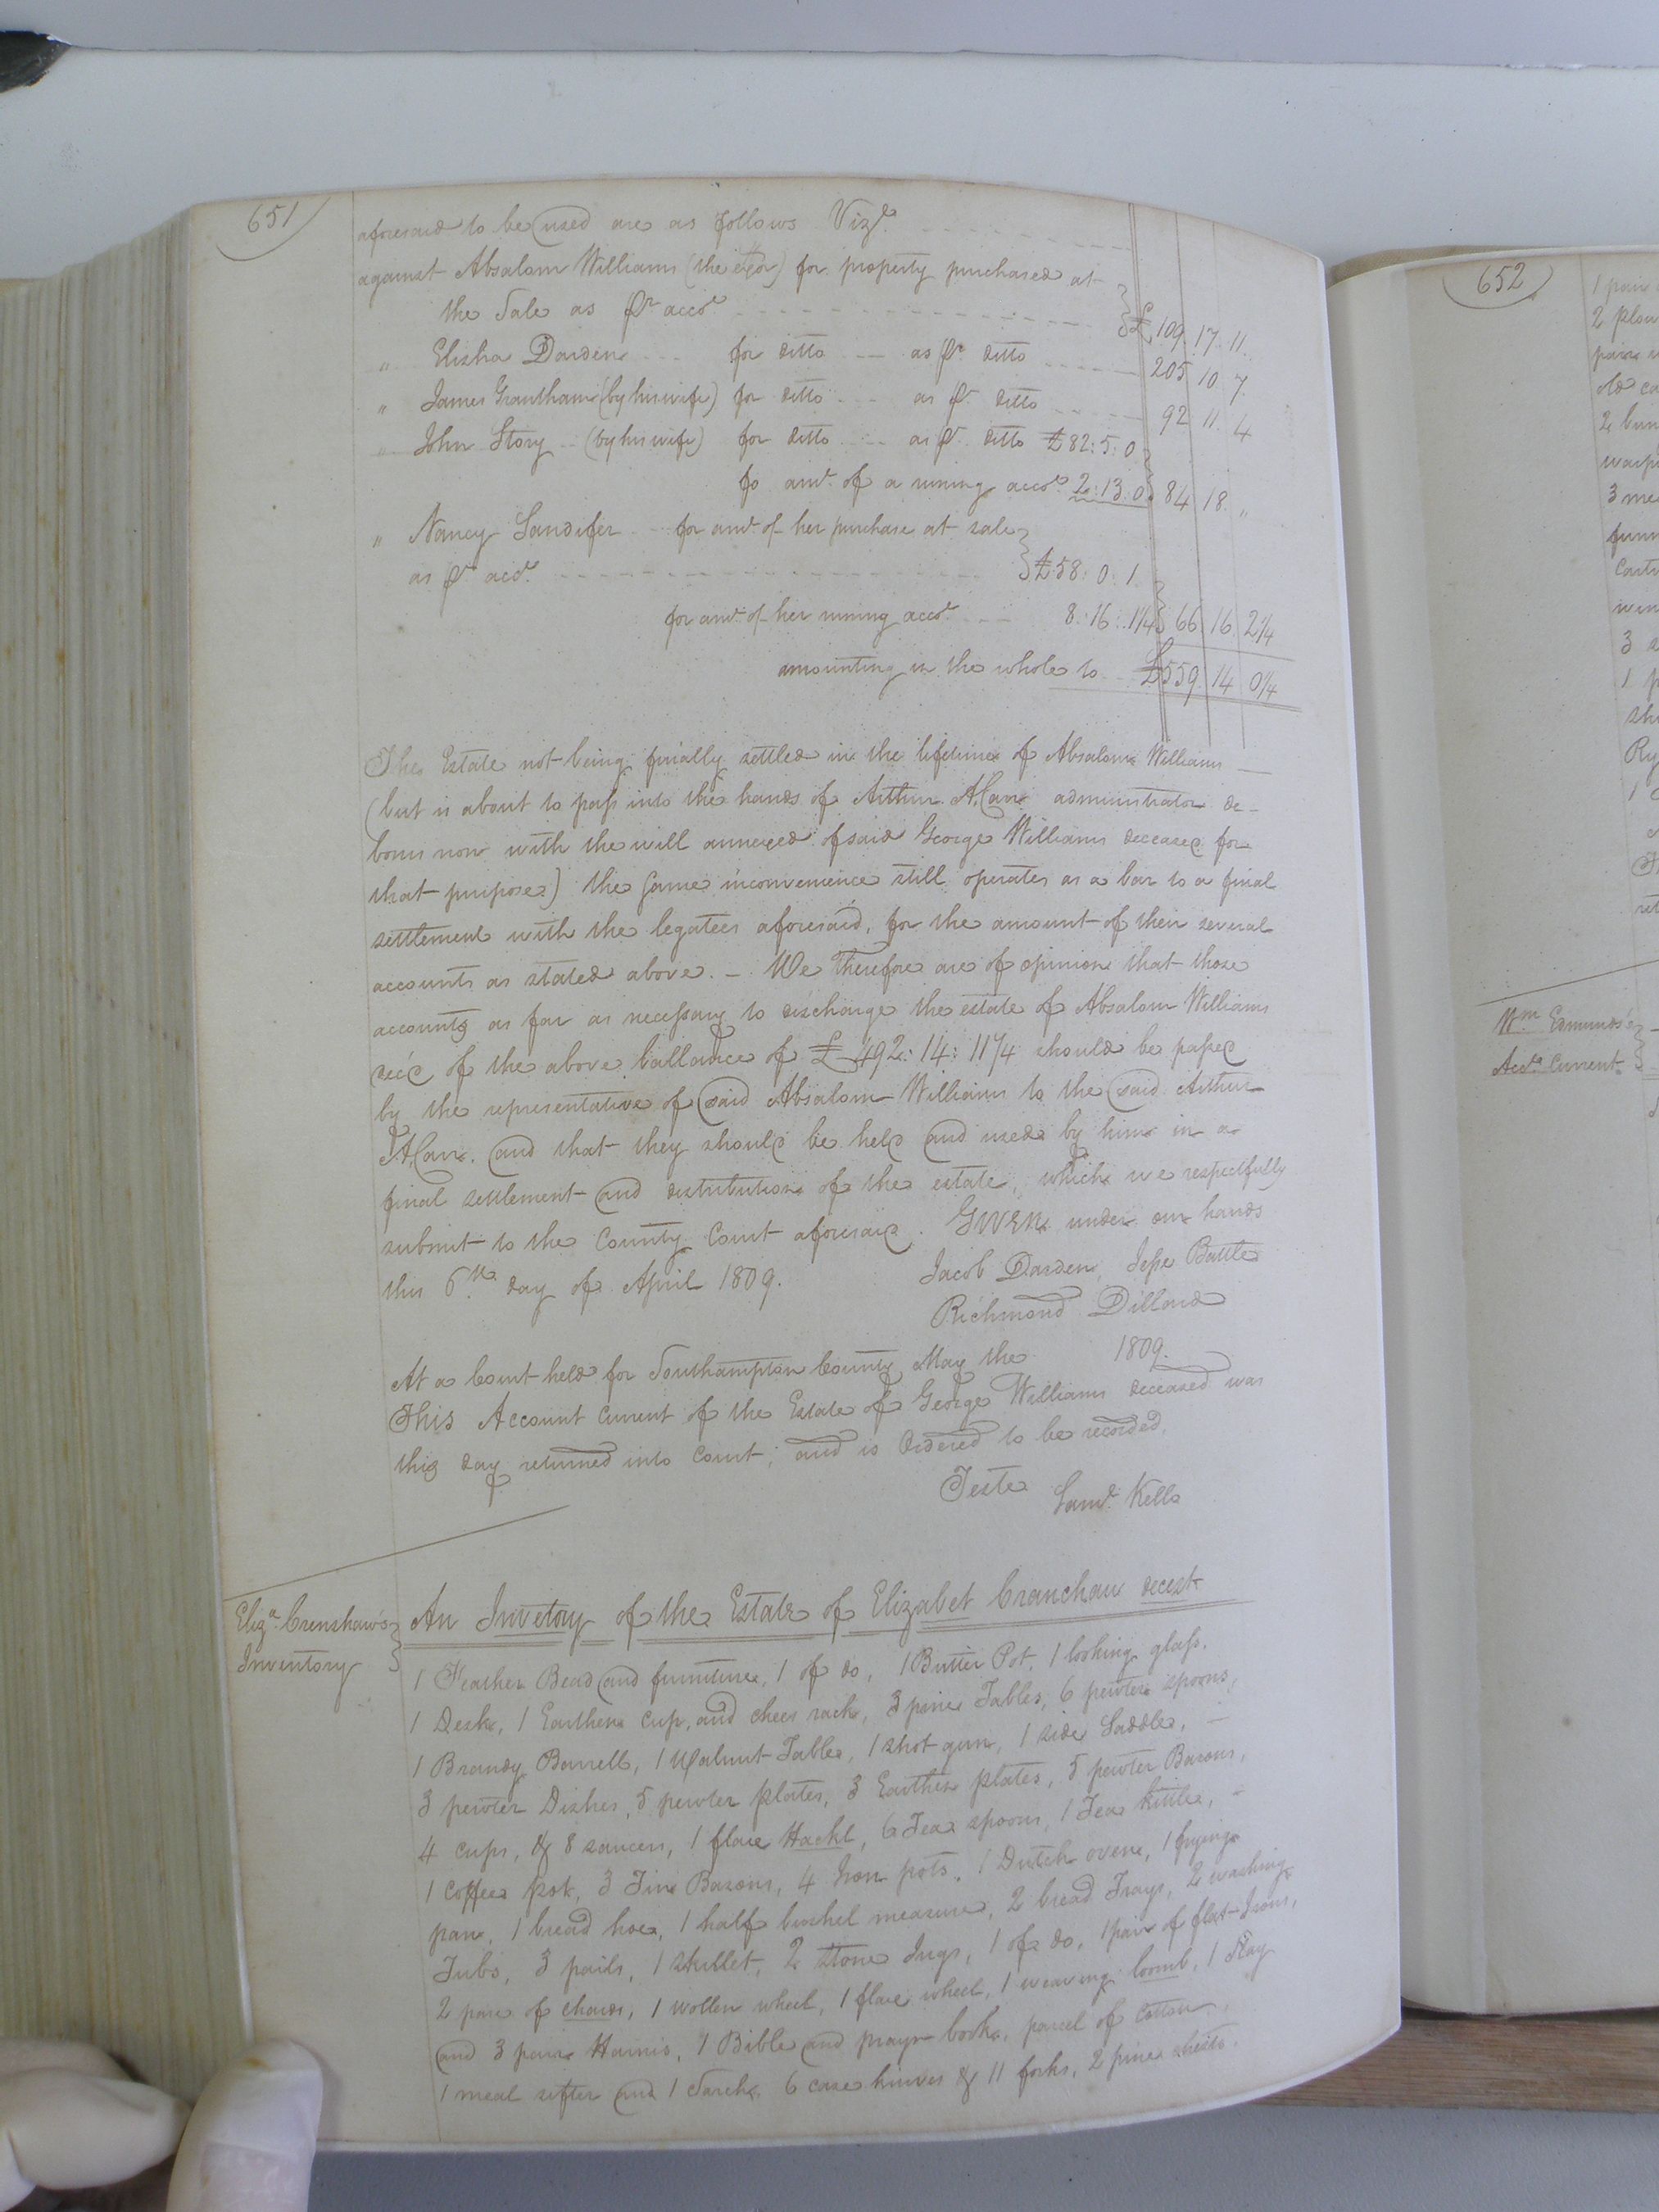 651
aforesaid to be used are as follows Vizt.
against Absalom Williams (the exor) for property purchased at
the Sale as pr accot £ 109. 17. 11.
" Elisha Darden for ditto as pr. ditto 205 10 7.
" James Grantham (by his wife) for ditto as pr. ditto 92 11. 4
" John Story (by his wife) for ditto as pr. ditto £82:5:0
fo amt. of a runing accot. 2:13:0 84 18. "
" Nancy Sandifer for amt. of her purchase at sale
as pr accot. £58:0:1.
for amt. of her runing accot. 8:16:1¼ 66 16 2¼
amounting in the whole to £559 14 0¼
The Estate not being finally settled in the lifetime of Absalom Williams
(but is about to pass into the hands of Arthur A. Carr administrator de-
bonus non with the will annexed of said George Williams deceased for
that purpose) the same inconvenience still operates as a bar to a final
settlement with the legatees aforesaid, for the amount of their several
accounts as stated above. - We Therefore are of opinion that those
accounts as far as necessary to discharge the estate of Absalom Williams
dec'd of the above ballance of £492:14:11¼ should be passed
by the representative of said Absalom Williams to the said Arthur
A. Carr. and that they should be held and used by him in a
final settlement and distribution of the estate, which we respectfully
submit to the County Court aforesaid. GIVEN under our hands
this 6th. day of April 1809.
Jacob Darden, Jesse Battle
Richmond Dillard
At a Court held for Southampton County May the 1809.
This Account Current of the Estate of George Williams deceased was
this day returned into Court; and is Ordered to be recorded,
Teste Saml. Kello
Eliza. Crenshaw's
Inventory
An Invetory of the Estate of Elizabet Cranchaw decest
1 Feather Bead and furniture, 1 of do, 1 Butter Pot, 1 looking glass,
1 Desk, 1 Earthen Cup, and chees rack, 3 pine Tables, 6 pewter spoons,
1 Brandy Barrell, 1 Walnut Table, 1 shot gun, 1 side Saddle, -
3 pewter Dishes, 5 pewter plates, 3 Earthen plates, 5 pewter Basons,
4 cups, & 8 saucers, 1 flax Hackl, 6 Tea spoons, 1 Tea kittle, -
1 Coffee pot, 3 Tin Basons, 4 Iron pots, 1 Dutch oven, 1 frying
pan, 1 bread hoe, 1 half bushel measure, 2 bread Trays, 2 washing
Tubs, 3 pails, 1 skillet, 2 stone Jugs, 1 of do, 1 pair of flat Irons,
2 pare of chards, 1 wollen wheel, 1 flax wheel, 1 weaving loomb, 1 Slay
and 3 pair Harnis, 1 Bible and prayr book, parcel of Cotton,
1 meal sifter and 1 Sarch, 6 case knives & 11 forks, 2 pine chests.
652
1 pair
2 plow
pair
old
2
3
3
1
Wm. Edmunds's
Acct. Current